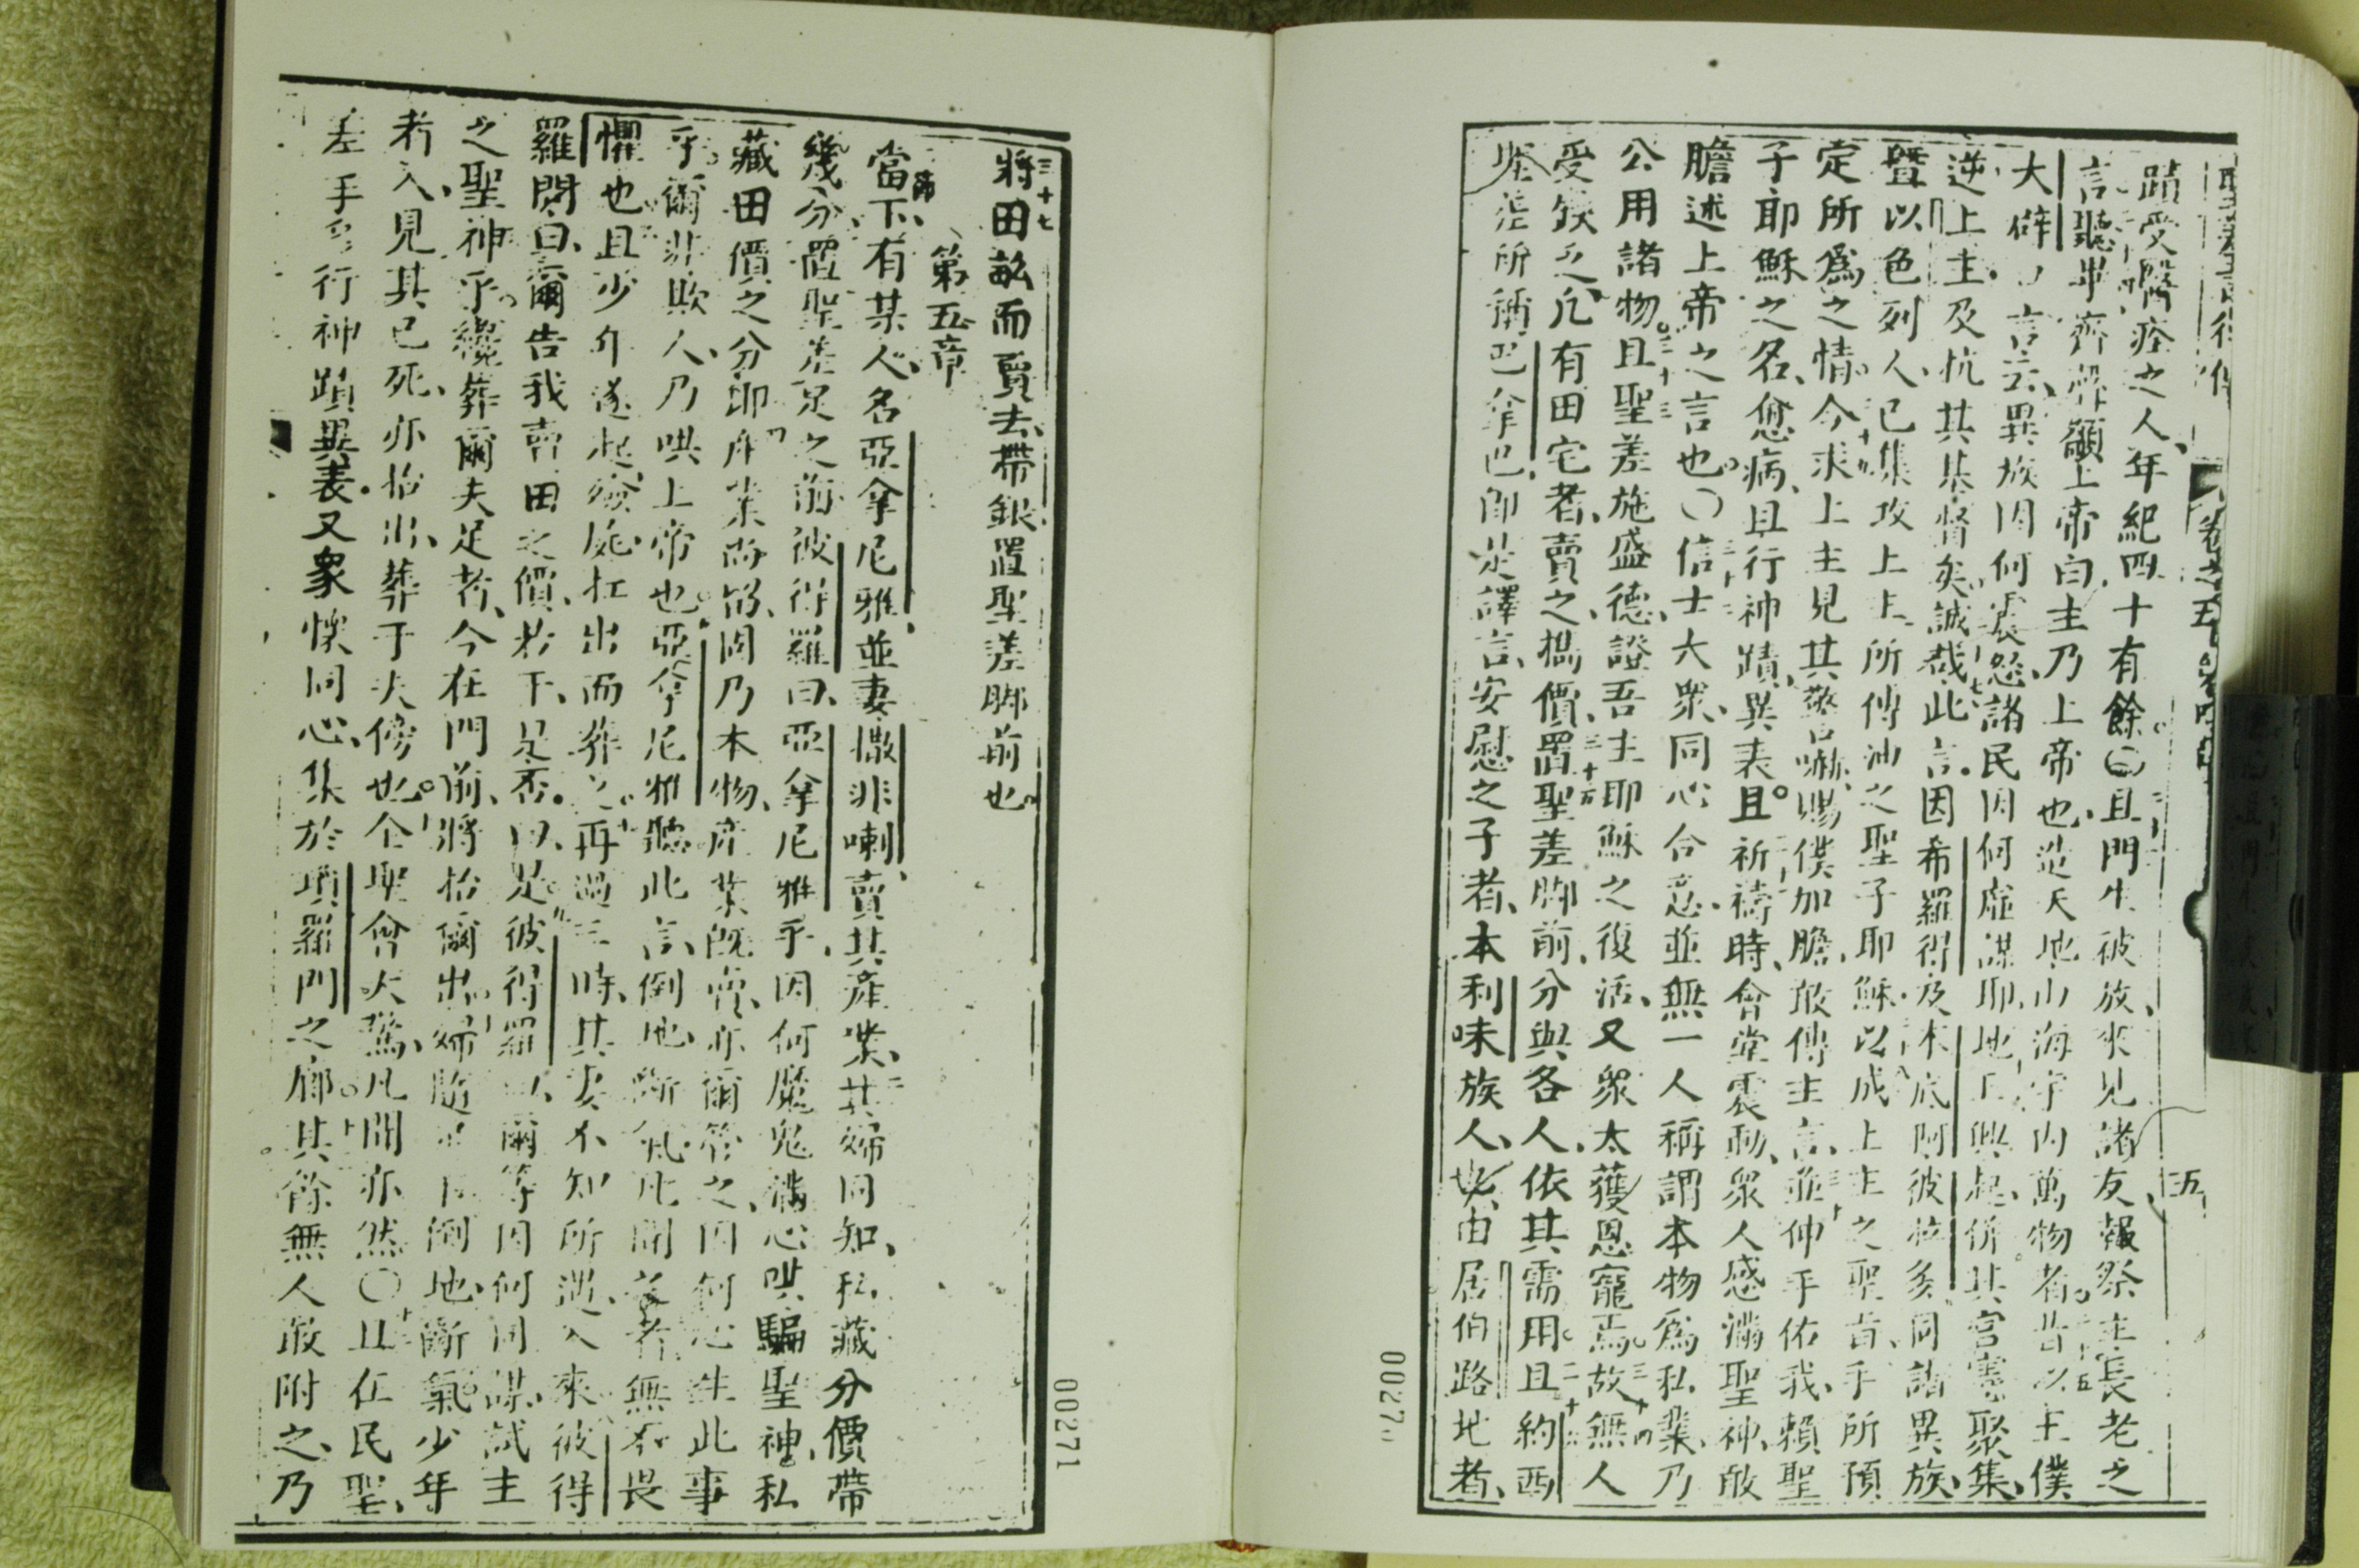 蹟受醫痊之人、年紀四十有餘。〇且門生被放、來見諸友、報祭主長老之
言。聽畢、齊聲籲上帝曰、主乃上帝也、造天地山海宇內萬物者。昔以主僕
大辟口言云、異族因何震怒、諸民因何虛謀耶、地王興起、併其官憲聚集、
逆上主、及抗其基督矣。誠哉此言、因希羅得及本底阿彼拉多、同諸異族、
暨以色列人、已集攻上主所傅油之聖子耶穌、以成上主之聖旨手所預
定所為之情。今求上主見其驚嚇、賜僕加膽、敢傳主言、並伸手佑我、賴聖
子耶穌之名、愈病、且行神蹟異表。且祈禱時、會堂震動、眾人感滿聖神、敢
膽述上帝之言也。〇信士大眾、同心合意、並無一人稱謂本物為私業、乃
公用諸物。且聖差施盛德、證吾主耶穌之復活、又眾太獲恩寵焉。故無人
受缺乏、凡有田宅者、賣之攜價、置聖差腳前、分與各人、依其需用。且約西
聖差所稱巴拿巴、即是譯言、安慰之子者、本利味族人、由居伯路地者、
五
00271
三十七
將田畝而賣去、帶銀置聖差腳前也。
第五章
當下、有某人名亞拿尼雅、並妻撒非喇、賣其產業、其婦同知、私藏分價、帶
幾分、置聖差足之前。彼得羅曰、亞拿尼雅乎、因何魔鬼滿心哄騙聖神、私
藏田價之分、即產業尚留、固乃本物、產業既賣、亦爾管之、因何心生此事
乎。爾非欺人、乃哄上帝也。亞拿尼雅聽此言、倒地斷氣、凡聞者無不畏
懼也。且少年遂起、殮屍扛出而葬之。再過三時、其妻不知所遇、入來。彼得
羅問曰、爾告我、賣田之價若干、是否。曰、是。彼得羅曰、爾等因何同謀、試主
之聖神乎。纔葬爾夫足者、今在門前、將抬爾出。婦隨即倒地斷氣、少年
者入、見其已死、亦抬出、葬于夫傍也。全聖會大驚、凡聞亦然。〇且在民、聖
差手多行神蹟異表。又眾懷同心、集於瑣羅門之廊、其餘無人敢附之、乃